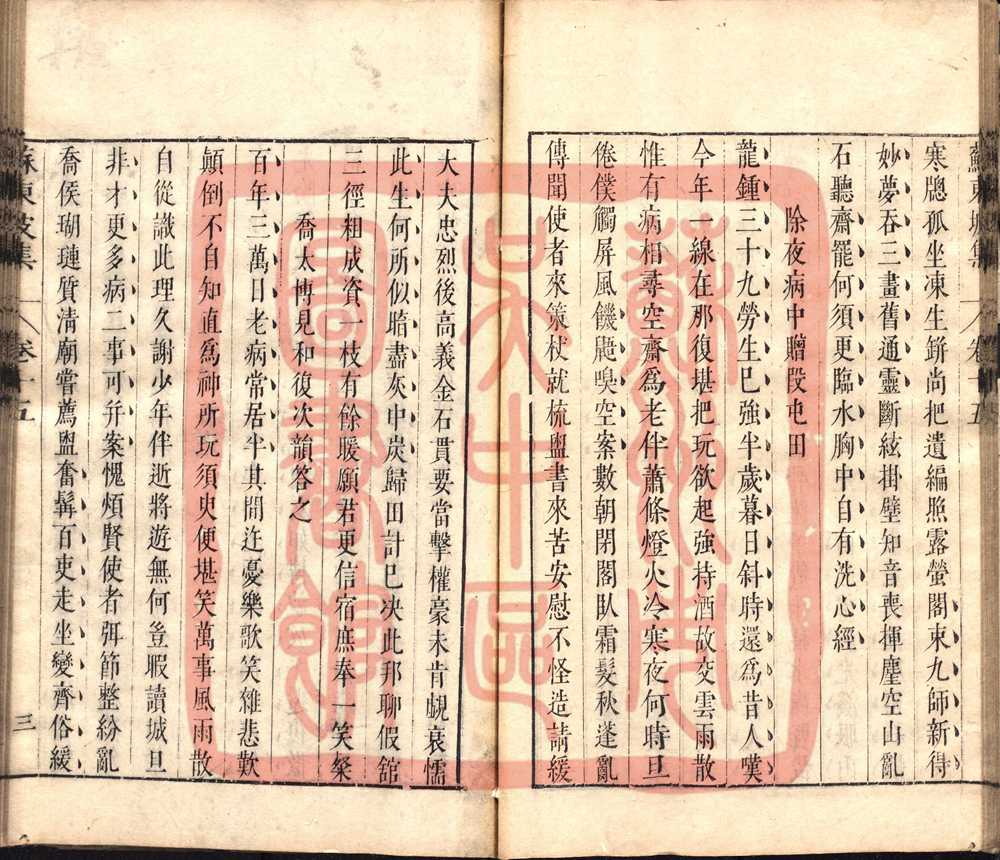 蘇東坡集 卷十五
寒牕孤坐凍生缾尚把遺編照露螢閣束九師新得
妙夢吞三畫舊通靈斷絃掛壁知音喪揮麈空山亂
石聽齋罷何須更臨水胸中自有洗心經
除夜病中贈段屯田
龍鍾三十九勞生已強半歲暮日斜時還爲昔人嘆
今年一線在那復堪把玩欲起強持酒故交雲雨散
惟有病相尋空齋爲老伴蕭條燈火冷寒夜何時旦
倦僕觸屏風饑鼯嗅空案數朝閉閣臥霜髮秋蓬亂
傳聞使者來策杖就梳盥書來苦安慰不怪造請緩
大夫忠烈後高義金石貫要當擊權豪未肯覷衰懦
此生何所似暗盡灰中炭歸田計已决此邦聊假舘
三徑粗成資一枝有餘暖願君更信宿庶奉一笑粲
喬太博見和復次韻答之
百年三萬日老病常居半其間迮憂樂歌笑雜悲歎
顛倒不自知直爲神所玩須臾便堪笑萬事風雨散
自從識此理久謝少年伴逝將遊無何豈暇讀城旦
非才更多病二事可幷案愧煩賢使者弭節整紛亂
喬侯瑚璉質清廟嘗薦盥奮髯百吏走坐變齊俗緩
蘇東坡集 卷十五 三